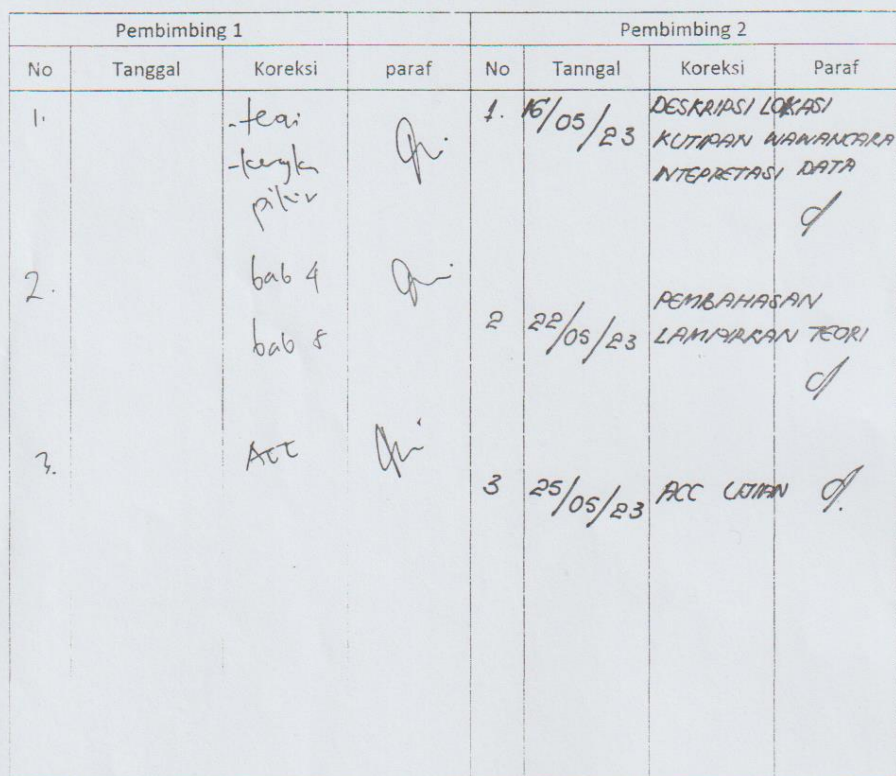 Pembimbing 1 Pembimbing 2
No Tanggal Koreksi paraf No Tanngal Koreksi Paraf
1. -teori 1. 16/05/23 DESKRIPSI LOKASI
KUTIPAN WAWANCARA
pikir INTEPRETASI DATA
2. bab 4
bab 2 22/05/23 PEMBAHASAN
LAMPIRKAN TEORI
3. ACC
3 25/05/23 ACC UJIAN